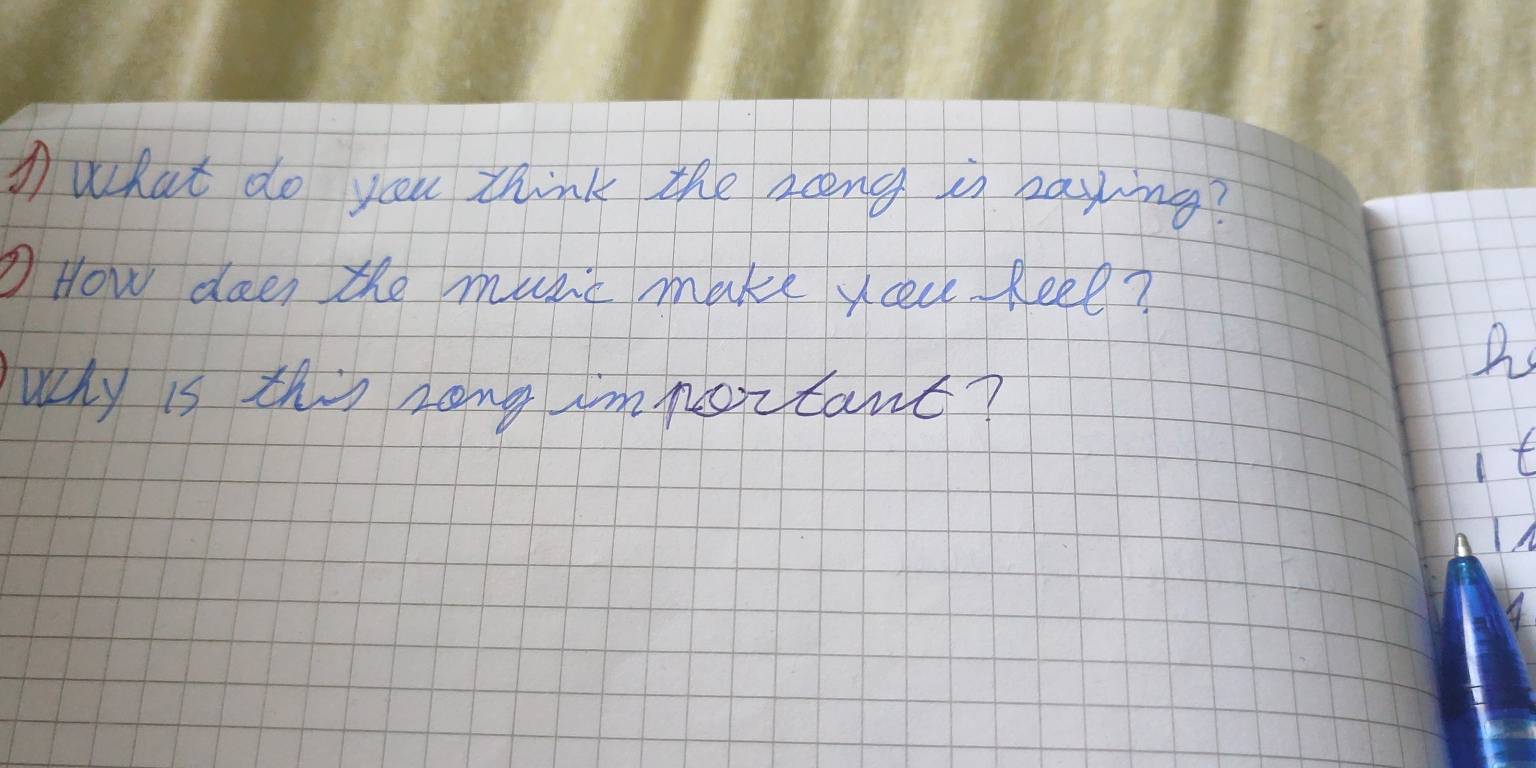 1) What do you think the song is saying?
2) How does the music make you feel?
) Why is this song important?